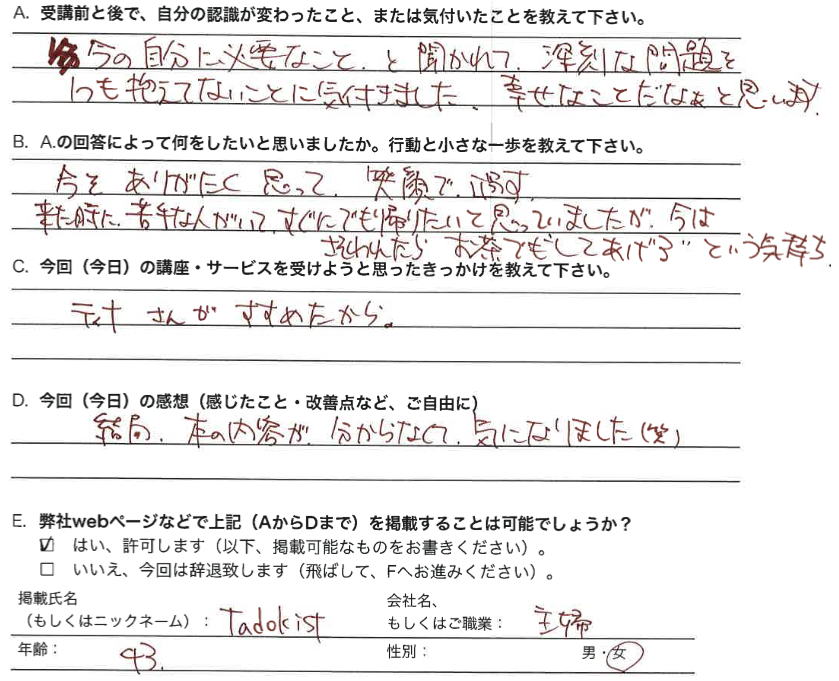 A. 受講前と後で、自分の認識が変わったこと、または気付いたことを教えて下さい。
今の自分に必要なこと、と聞かれて、深刻な問題を
1つも抱えてないことに気付きました。幸せなことだなぁと思います。
B. A.の回答によって何をしたいと思いましたか。行動と小さな一歩を教えて下さい。
今をありがたく思って、笑顔で過す。
来た時に、苦手な人がいて、すぐにでも帰りたいと思っていましたが、今は
さそわれたら お茶でもしてあげる" という気持ち。
C. 今回（今日）の講座・サービスを受けようと思ったきっかけを教えて下さい。
さんが すすめたから。
D. 今回（今日）の感想（感じたこと・改善点など、ご自由に）
結局、本の内容が、分からなくて、気になりました（笑）
E. 弊社webページなどで上記（AからDまで）を掲載することは可能でしょうか？
☑ はい、許可します（以下、掲載可能なものをお書きください）。
□ いいえ、今回は辞退致します（飛ばして、Fへお進みください）。
掲載氏名 会社名、
（もしくはニックネーム）： Tadokist もしくはご職業： 主婦
年齢： 43. 性別： 男・女